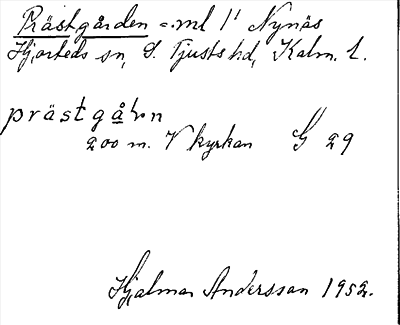 Prästgården = ml 1¹ Nynäs
Hjorteds sn, S. Tjusts hd, Kalm. l.
prästgå̱ɳ
200 m. V kyrkan G 29
Hjalmar Andersson 1952.